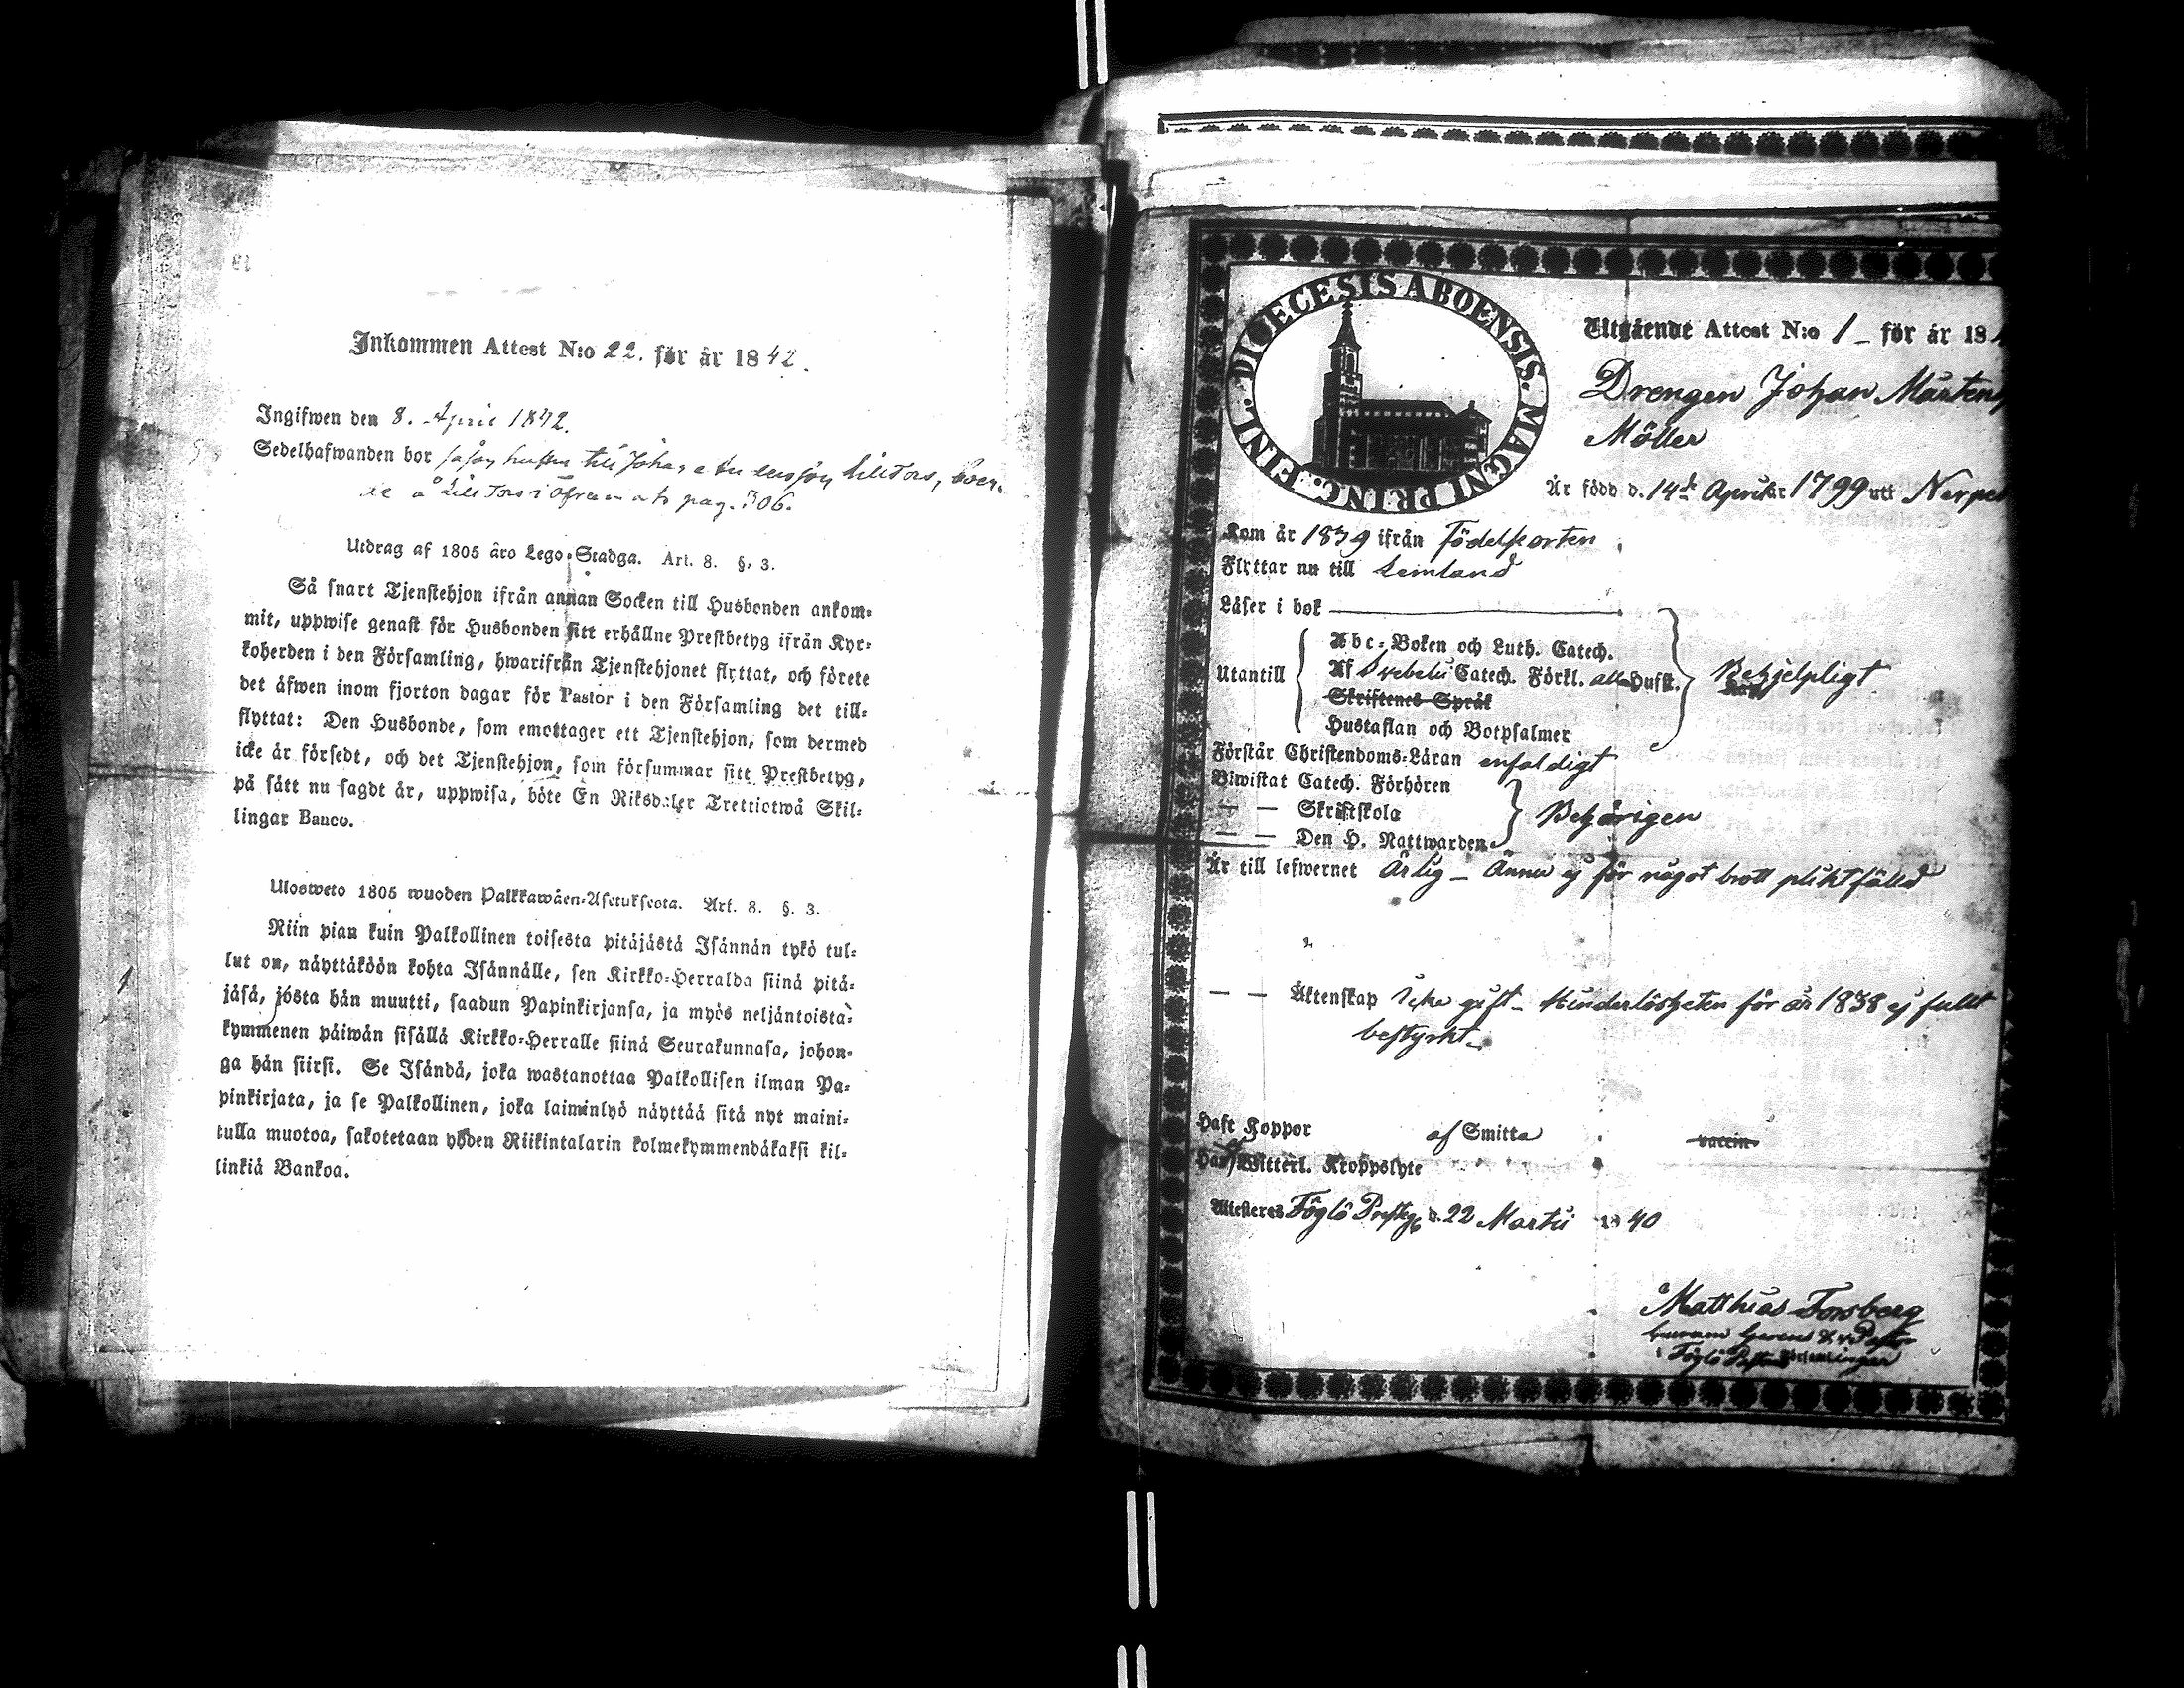 Inkommen Attest N:o 22. för år 1842.
Ingifwen den 8. April 1842.
Sedelhafwanden bor till Johan Lilltors,
å Lill Tors i pag. 306.
Utdrag af 1805 års Lego-Stadga. Art. 8. §. 3.
Så snart Tjenstehjon ifrån annan Socken till Husbonden ankom-
mit, uppwise genast för Husbonden sitt erhållne Prestbetyg ifrån Kyr-
koherden i den Församling, hwarifrån Tjenstehjonet flyttat, och förete
det äfwen inom fjorton dagar för Pastor i den Församling det till-
flyttat: Den Husbonde, som emottager ett Tjenstehjon, som dermed
icke är försedt, och det Tjenstehjon, som försummar sitt Prestbetyg,
på sätt nu sagdt är, uppwisa, böte En Riksdaler Trettiotwå Skil-
lingar Banco.
Ulosweto 1805 wuoden Palkkawäen-Asetuksesta. Art. 8. §. 3.
Niin pian kuin Palkollinen toisesta pitäjästä Isännän tykö tul-
lut on, näyttäköön kohta Isännälle, sen Kirkko-Herralda siinä pitä-
jäsä, josta hän muutti, saadun Papinkirjansa, ja myös neljäntoista-
kymmenen päiwän sisällä Kirkko-Herralle siinä Seurakunnasa, johon-
ga hän siirsi. Se Isändä, joka wastanottaa Palkollisen ilman Pa-
pinkirjata, ja se Palkollinen, joka laiminlyö näyttää sitä nyt maini-
tulla muotoa, sakotetaan yhden Riikintalarin kolmekymmendäkaksi kil-
linkiä Bankoa.
DIOECESIS ABOENSIS. MAGNI PRINC. FINL.
Utgående Attest N:o 1 för år 18
Drengen Johan Mårtens
Möller
Är född d. 14de April år 1799 uti Nerpes
Kom år 1839 ifrån Födelseorten
Flyttar nu till Lemland
Läser i bok
Abc-Boken och Luth. Catech.
Utantill Af Svebelii Catech. Förkl. alla Hufst. Behjelpligt
Skriftenes Språk
Hustaflan och Botpsalmer
Förstår Christendoms-Läran enfaldigt
Biwistat Catech. Förhören
— — Skriftskola Behörigen
— — Den H. Nattwarden
Är till lefwernet Ärlig — Ännu ej för något brott pliktfälld
— — Äktenskap Icke gift — Hinderlösheten för år 1838 ej fullt
bestyrkt —
Haft Koppor af Smitta vaccin
Har Witterl. Kroppslyte
Attesteres Föglö Prestg. d. 22 Martii 1840
Matthias Forsberg
Föglö